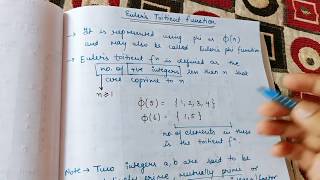 Euler's Totient Function
→ It is represented using phi as φ(n)
and may also be called Euler's phi function
→ Euler's totient fⁿ is defined as the
no. of +ve integers less than n that
are coprime to n
n≥1
φ(5) = {1,2,3,4}
φ(6) = {1,5}
no. of elements in these
is the totient fⁿ.
Note → Two integers a, b are said to be
relatively prime, mutually prime or